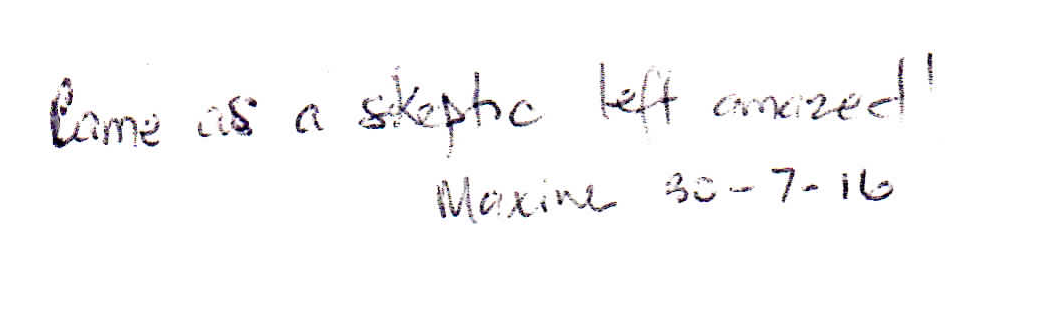 Came as a skeptic left amazed!
Maxine 30-7-16